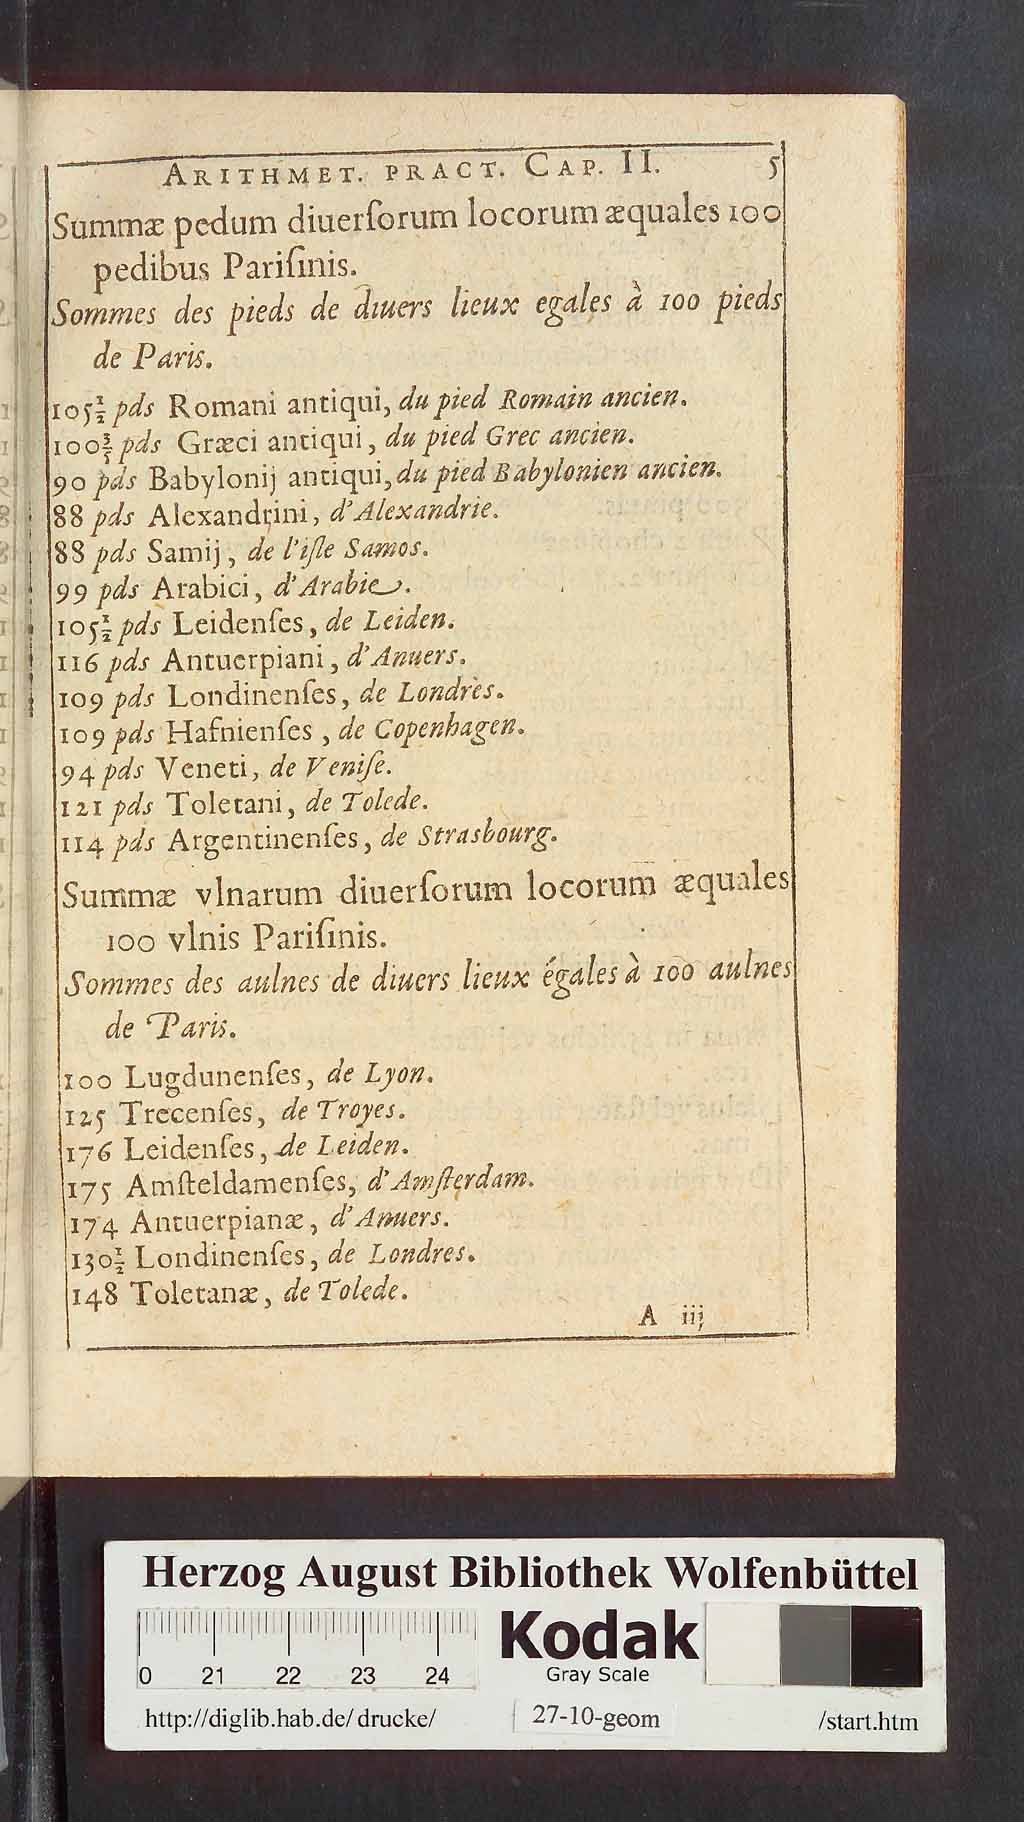 ARITHMET. PRACT. CAP. II. 5
Summæ pedum diuerſorum locorum æquales 100
pedibus Pariſinis.
Sommes des pieds de diuers lieux egales à 100 pieds
de Paris.
105½ pds Romani antiqui, du pied Romain ancien.
100⅗ pds Græci antiqui, du pied Grec ancien.
90 pds Babylonij antiqui, du pied Babylonien ancien.
88 pds Alexandrini, d'Alexandrie.
88 pds Samij, de l'iſle Samos.
99 pds Arabici, d'Arabie.
105½ pds Leidenſes, de Leiden.
116 pds Antuerpiani, d'Anuers.
109 pds Londinenſes, de Londres.
109 pds Hafnienſes, de Copenhagen.
94 pds Veneti, de Veniſe.
121 pds Toletani, de Tolede.
114 pds Argentinenſes, de Strasbourg.
Summæ vlnarum diuerſorum locorum æquales
100 vlnis Pariſinis.
Sommes des aulnes de diuers lieux égales à 100 aulnes
de Paris.
100 Lugdunenſes, de Lyon.
125 Trecenſes, de Troyes.
176 Leidenſes, de Leiden.
175 Amſteldamenſes, d'Amſterdam.
174 Antuerpianæ, d'Anuers.
130½ Londinenſes, de Londres.
148 Toletanæ, de Tolede.
A iij
Herzog August Bibliothek Wolfenbüttel
0 21 22 23 24
Kodak
Gray Scale
http://diglib.hab.de/drucke/ 27-10-geom /start.htm